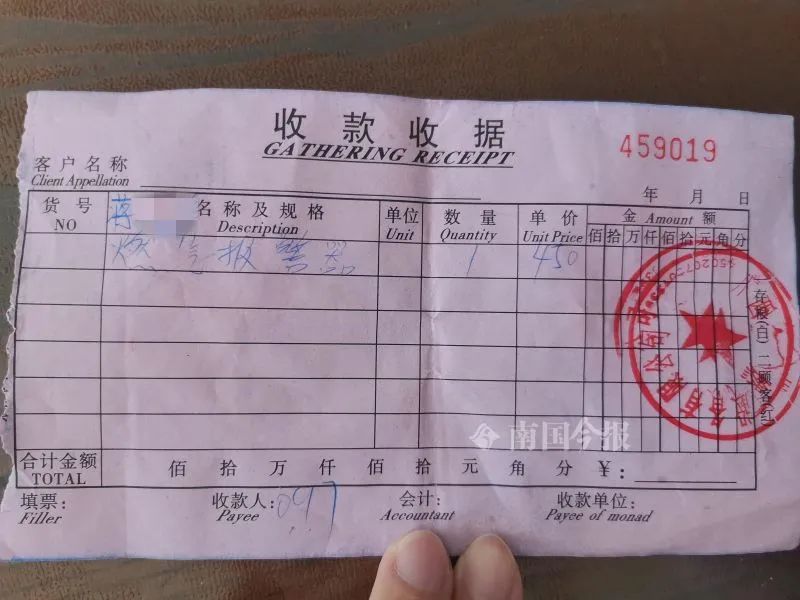 收款收据
GATHERING RECEIPT
459019
客户名称
Client Appellation
年 月 日
货号 名称及规格 单位 数量 单价 金 Amount 额
NO Description Unit Quantity Unit Price 佰 拾 万 仟 佰 拾 元 角 分
蒋
燃气报警器 1 450
存根(白) 二顾客(红)
南国今报
合计金额 佰 拾 万 仟 佰 拾 元 角 分 ¥:
TOTAL
填票: 收款人: 会计: 收款单位:
Filler Payee Accountant Payee of monad